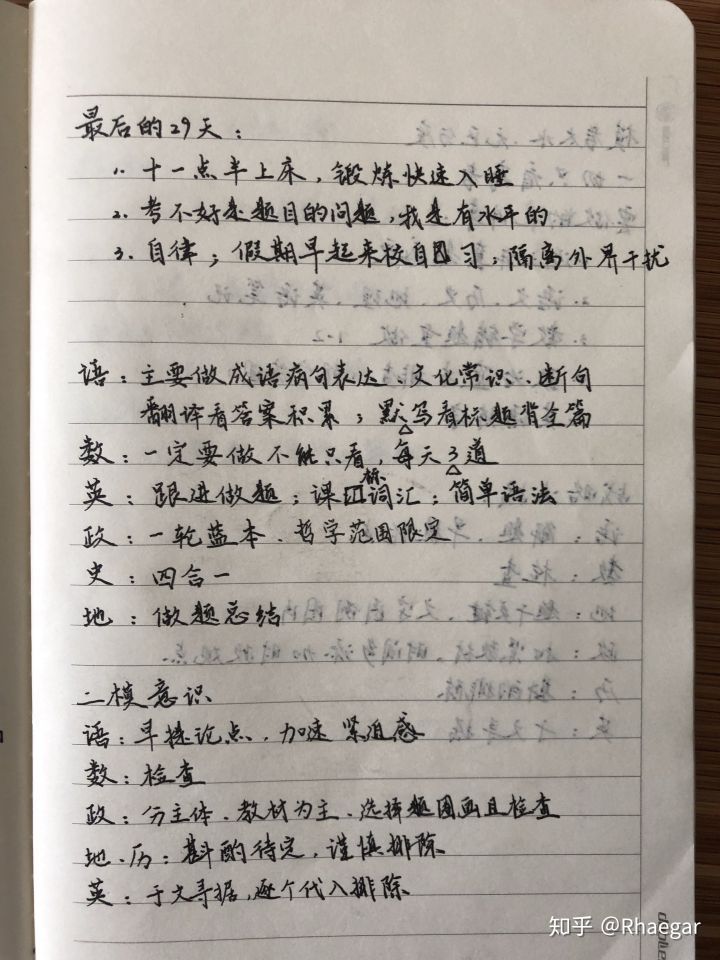 最后的29天：
1. 十一点半上床，锻炼快速入睡
2. 考不好是题目的问题，我是有水平的
3. 自律；假期早起来校自习；隔离外界干扰
语：主要做成语病句表达、文化常识、断句
翻译看答案积累；默写看标题背全篇
数：一定要做不能只看，每天3道
英：跟进做题；课标词汇；简单语法
政：一轮蓝本、哲学范围限定
史：四合一
地：做题总结
二模意识
语：早拣论点，加速 紧迫感
数：检查
政：分主体、教材为主、选择题圈画且检查
地、历：斟酌待定，谨慎排除
英：于文寻据，逐个代入排除
知乎 @Rhaegar